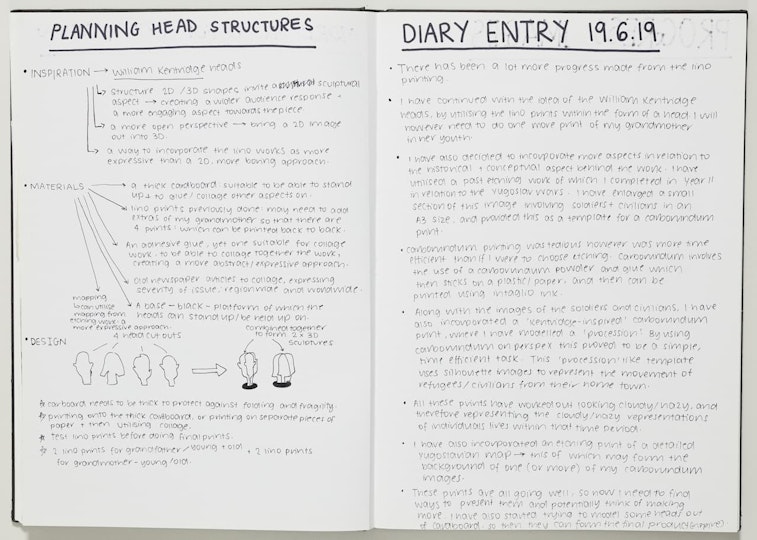 PLANNING HEAD STRUCTURES
• INSPIRATION → William Kentridge heads
structure 2D / 3D shapes invite a sculptural
aspect → creating a wider audience response +
a more engaging aspect towards the piece
a more open perspective → bring a 2D image
out into 3D
a way to incorporate the lino works as more
expressive than a 2D, more boring approach.
• MATERIALS
a thick cardboard: suitable to be able to stand
up + to glue / collage other aspects on.
lino prints previously done: may need to add
extras of my grandmother so that there are
4 prints: which can be printed back to back.
An adhesive glue, yet one suitable for collage
work: to be able to collage together the work,
creating a more abstract/expressive approach.
Old newspaper articles to collage, expressing
severity of issue, regionwide and worldwide.
A base - black - platform of which the
heads can stand up/be held up on.
mapping
↳ can utilise
mapping from
etching work: a
more expressive approach.
• DESIGN
4 head cut outs
combined together
to form 2 x 3D
sculptures
* cardboard needs to be thick to protect against folding and fragility.
* printing onto the thick cardboard, or printing on separate pieces of
paper + then utilising collage.
* Test lino prints before doing final prints.
* 2 lino prints for grandfather / young + old + 2 lino prints
for grandmother - young/old.
DIARY ENTRY 19.6.19.
• There has been a lot more progress made from the lino
printing.
• I have continued with the idea of the William Kentridge
heads, by utilising the lino prints within the form of a head. I will
however need to do one more print of my grandmother
in her youth.
• I have also decided to incorporate more aspects in relation to
the historical + conceptual aspect behind the work. I have
utilised a past etching work of which I completed in Year 11
in relation to the Yugoslav Wars. I have enlarged a small
section of this image involving soldiers + civilians in an
A3 size, and provided this as a template for a carborundum
print.
• carborundum printing was tedious however was more time
efficient than if I were to choose etching. Carborundum involves
the use of a carborundum powder and glue which
then sticks on a plastic/paper, and then can be
printed using intaglio ink.
• Along with the images of the soldiers and civilians, I have
also incorporated a 'kentridge-inspired' carborundum
print, where I have modelled a 'procession'. By using
carborundum on perspex this proved to be a simple,
time efficient task. This 'procession' like template
uses silhouette images to represent the movement of
refugees/civilians from their home town.
• All these prints have worked out looking cloudy/hazy, and
therefore representing the cloudy/hazy representations
of individuals lives within that time period.
• I have also incorporated an etching print of a detailed
Yugoslavian map → this of which may form the
background of one (or more) of my carborundum
images.
• These prints are all going well, so now I need to find
ways to present them and potentially think of making
more. I have also started trying to model some heads out
of cardboard, so then they can form the final product